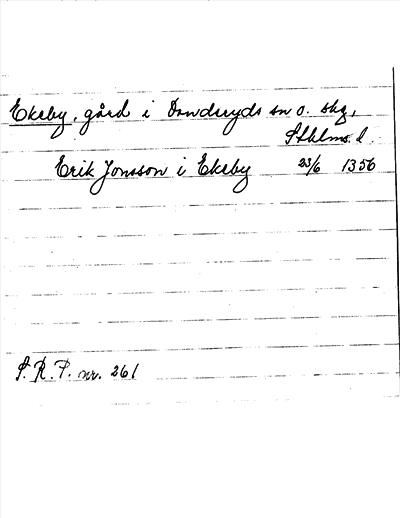 Ekeby, gård i Danderyds sn o. skg,
Sthlms l.
Erik Jonsson i Ekeby 23/6 1356
S. R. P. nr. 261